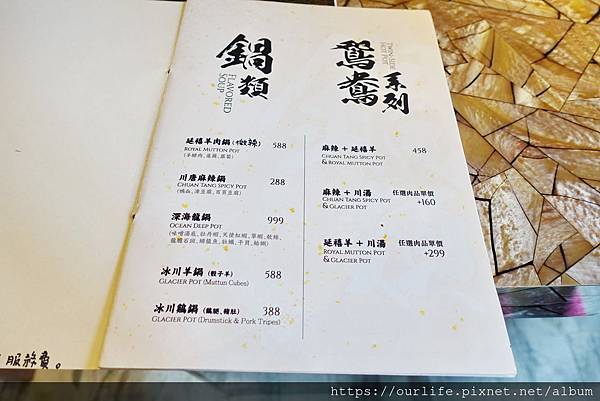 鍋類
FLAVORED
SOUP
延禧羊肉鍋(微辣) 588
ROYAL MUTTON POT
川唐麻辣鍋 288
CHUAN TANG SPICY POT
(鴨血、凍豆腐、百頁豆腐)
深海龍鍋 999
OCEAN DEEP POT
冰川羊鍋 (骰子羊) 588
GLACIER POT (Muttun Cubes)
冰川鷄鍋 (鷄腿、豬肚) 388
GLACIER POT (Drumstick & Pork Tripes)
鴛鴦系列
TWIN-SIDE
HOT POT
麻辣 + 延禧羊 458
CHUAN TANG SPICY POT
& ROYAL MUTTON POT
麻辣 + 川湯 任選肉品單價
CHUAN TANG SPICY POT +160
& GLACIER POT
延禧羊 + 川湯 任選肉品單價
ROYAL MUTTON POT +299
& GLACIER POT
服務費。
https://ourlife.pixnet.net/album